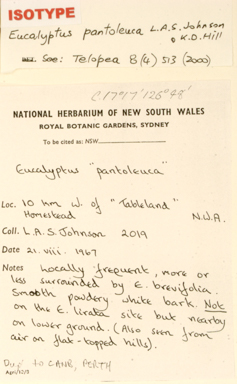 ISOTYPE
Eucalyptus pantoleuca L.A.S. Johnson
& K.D. Hill
See: Telopea 8(4) 513 (2000)
c.17°17' 126°44'
NATIONAL HERBARIUM OF NEW SOUTH WALES
ROYAL BOTANIC GARDENS, SYDNEY
To be cited as: NSW
Eucalyptus "pantoleuca"
Loc. 10 km W. of "Tableland"
Homestead N.W.A.
Coll. L.A.S. Johnson 2019
Date 21. viii. 1967
Notes Locally frequent, more or
less surrounded by E. brevifolia.
Smooth powdery white bark. Not
on the E. lirata site but nearby
on lower ground. (Also seen from
air on flat-topped hills).
Dup to CANB, PERTH